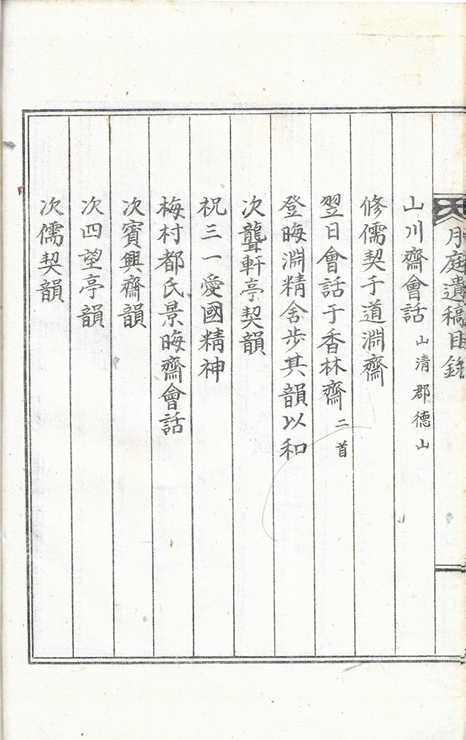 月庭遺稿目錄
山川齋會話 山清郡德山
修儒契于道淵齋
翌日會話于香林齋 二首
登晦淵精舍步其韻以和
次聾軒亭契韻
祝三一愛國精神
梅村都氏景晦齋會話
次賓興齋韻
次四望亭韻
次儒契韻